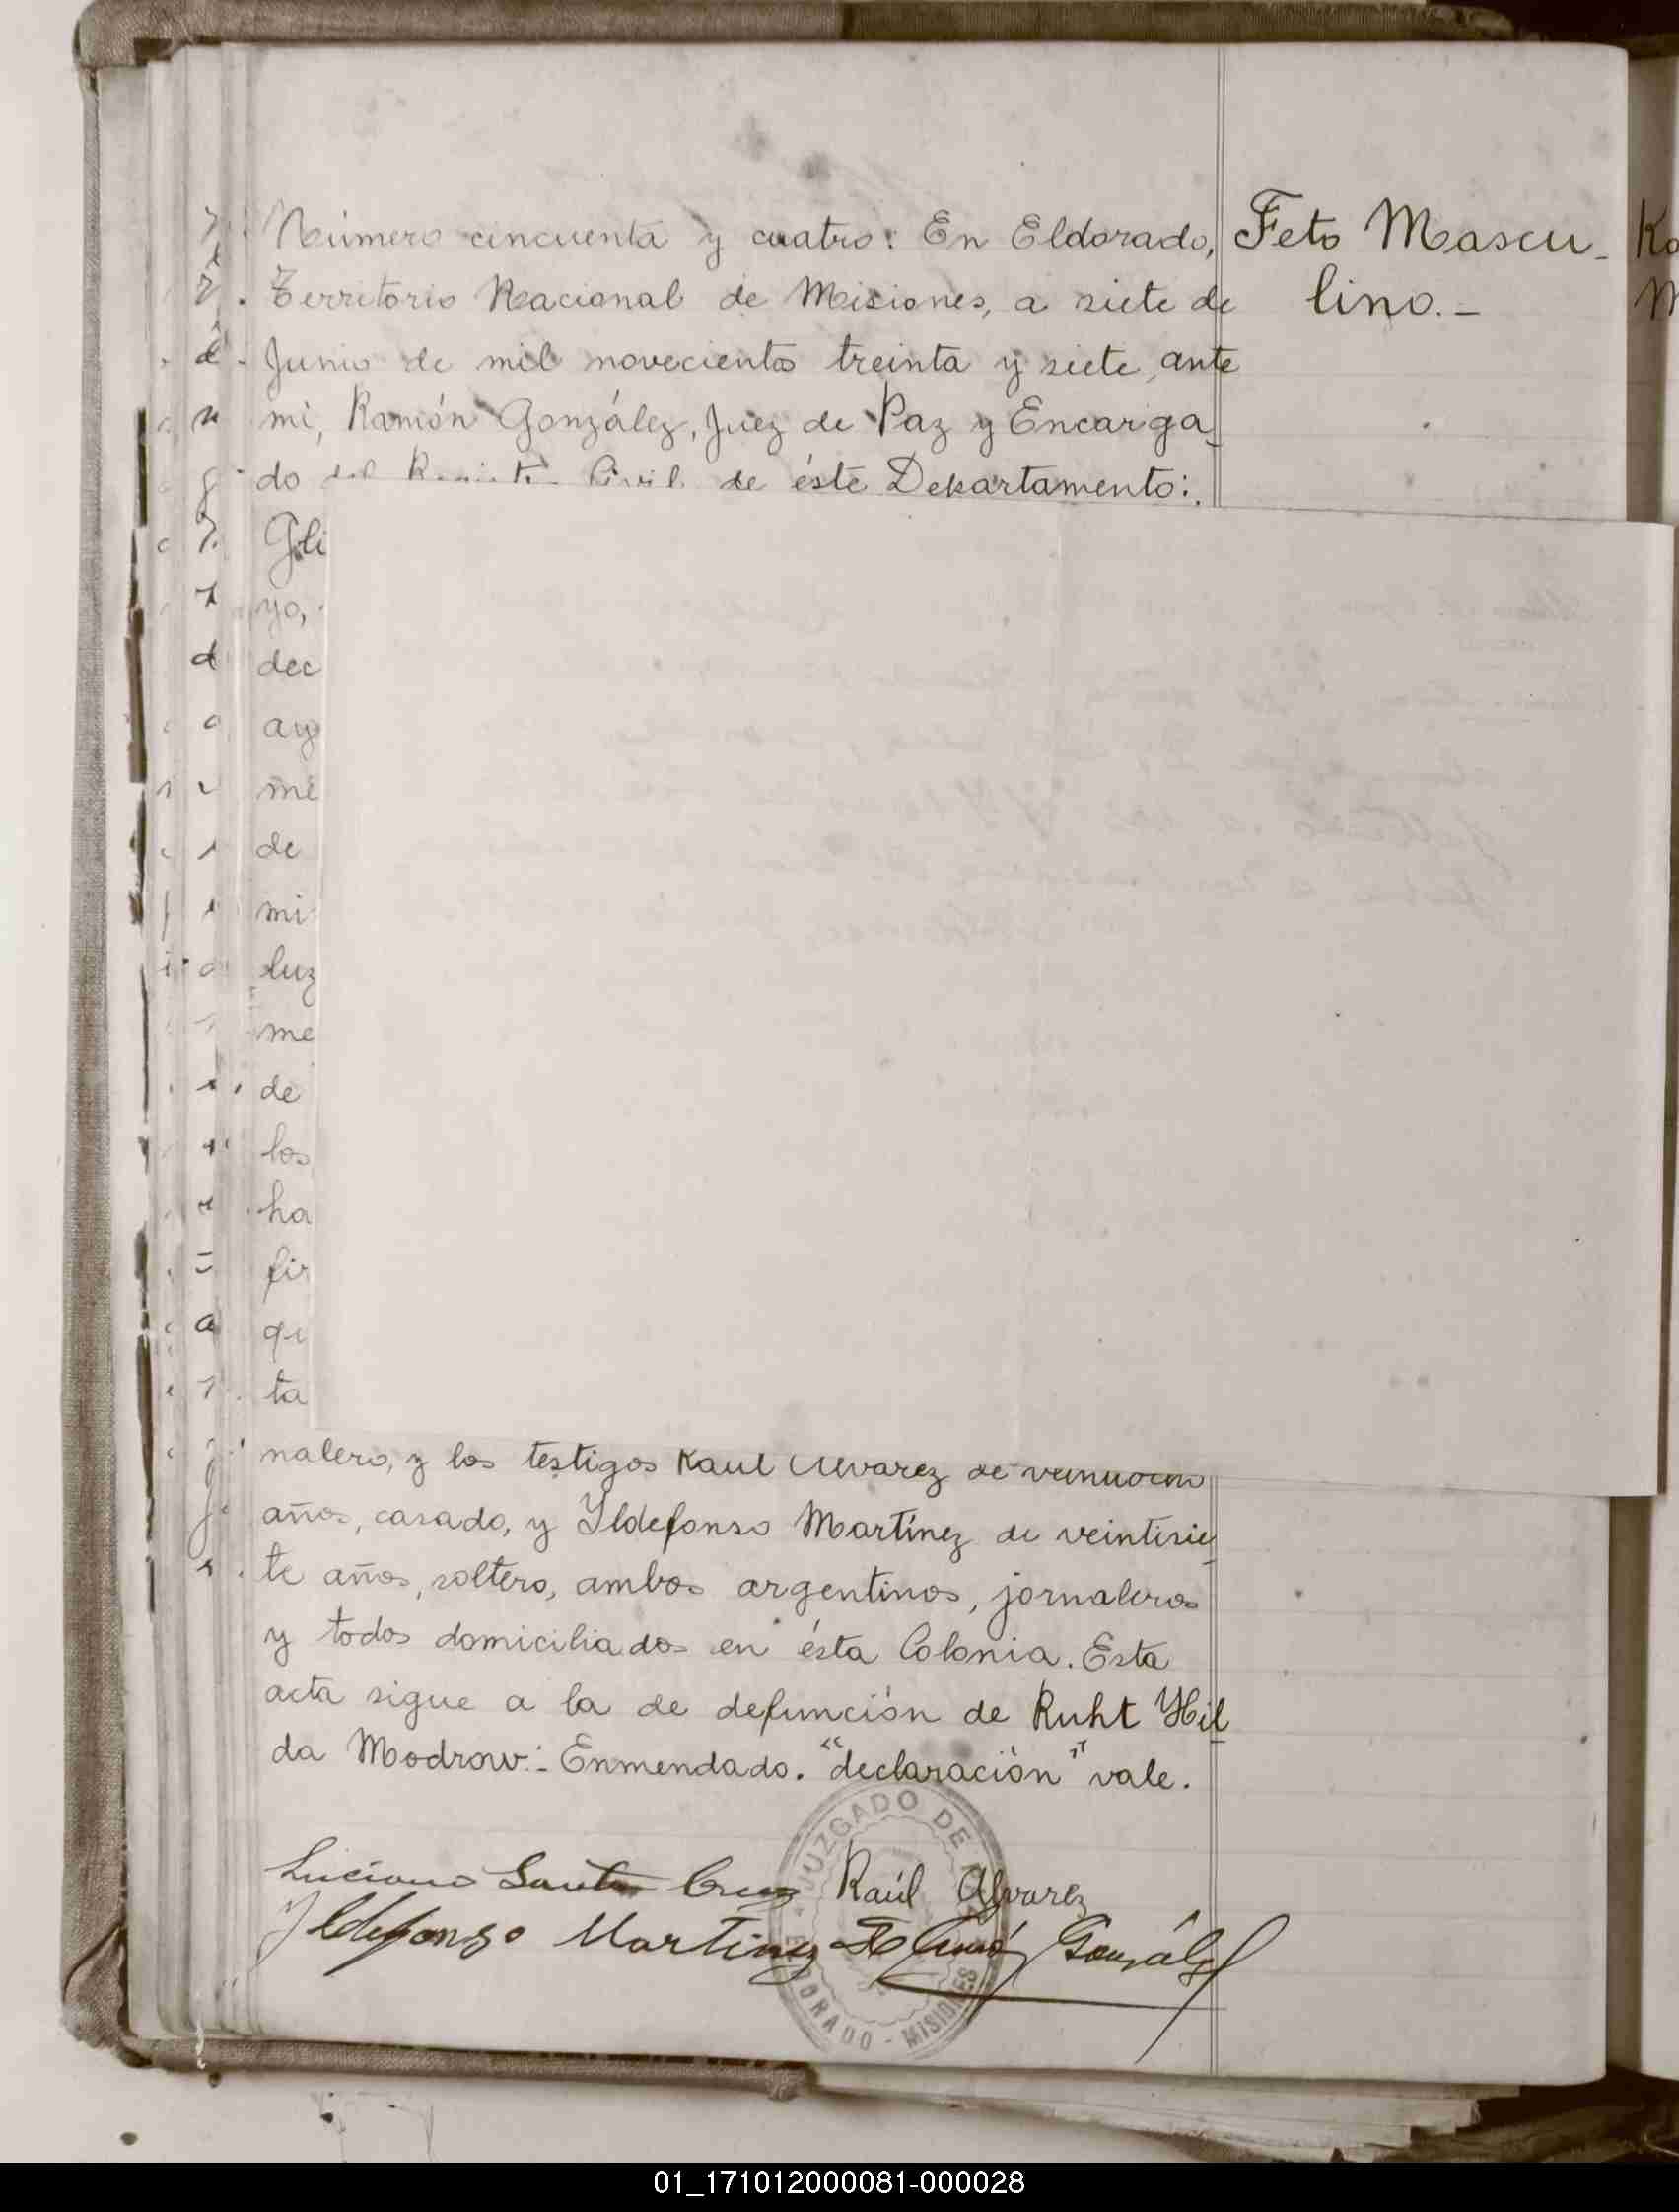 Número cincuenta y cuatro: En Eldorado,
Territorio Nacional de Misiones, a siete de
Junio de mil novecientos treinta y siete, ante
mi, Ramón González, Juez de Paz y Encarga_
do del Registro Civil de éste Departamento:
Feto Mascu_
lino._
yo,
dec
me
de
mi
luz
me
de
los
ha
fir
ta
nalero, y los testigos Raul Alvarez de veintiocho
años, casado, y Yldefonso Martínez de veintisie_
te años, soltero, ambos argentinos, jornaleros
y todos domiciliados en ésta Colonia. Esta
acta sigue a la de defunción de Ruht Hil_
da Modrow:_ Enmendado. "declaración" vale.
JUZGADO DE
DORADO - MISIONES
Luciano Santa Cruz Raúl Alvarez
Yldefonso Martinez Ramón González
01_171012000081-000028